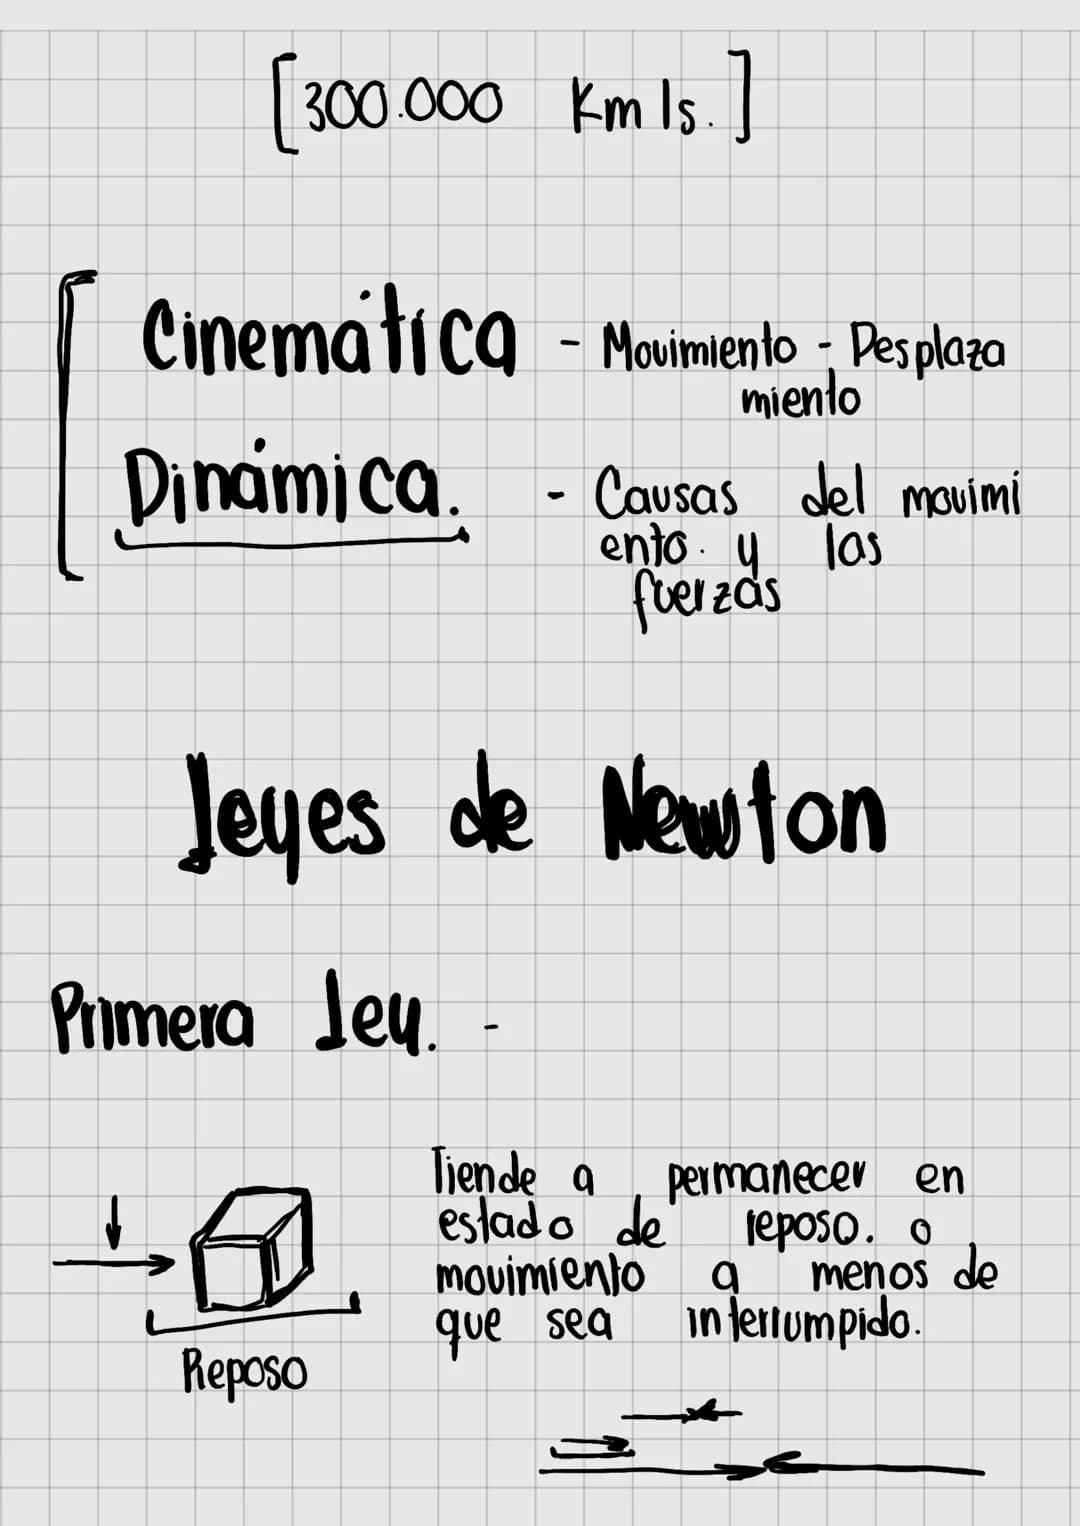 [300.000 Km/s.]
Cinemática - Movimiento - Desplaza
miento
Dinámica. - Causas del movimi
ento. y las
fuerzas
Leyes de Newton
Primera Ley. -
Tiende a permanecer en
estado de reposo. o
movimiento a menos de
que sea interrumpido.
Reposo